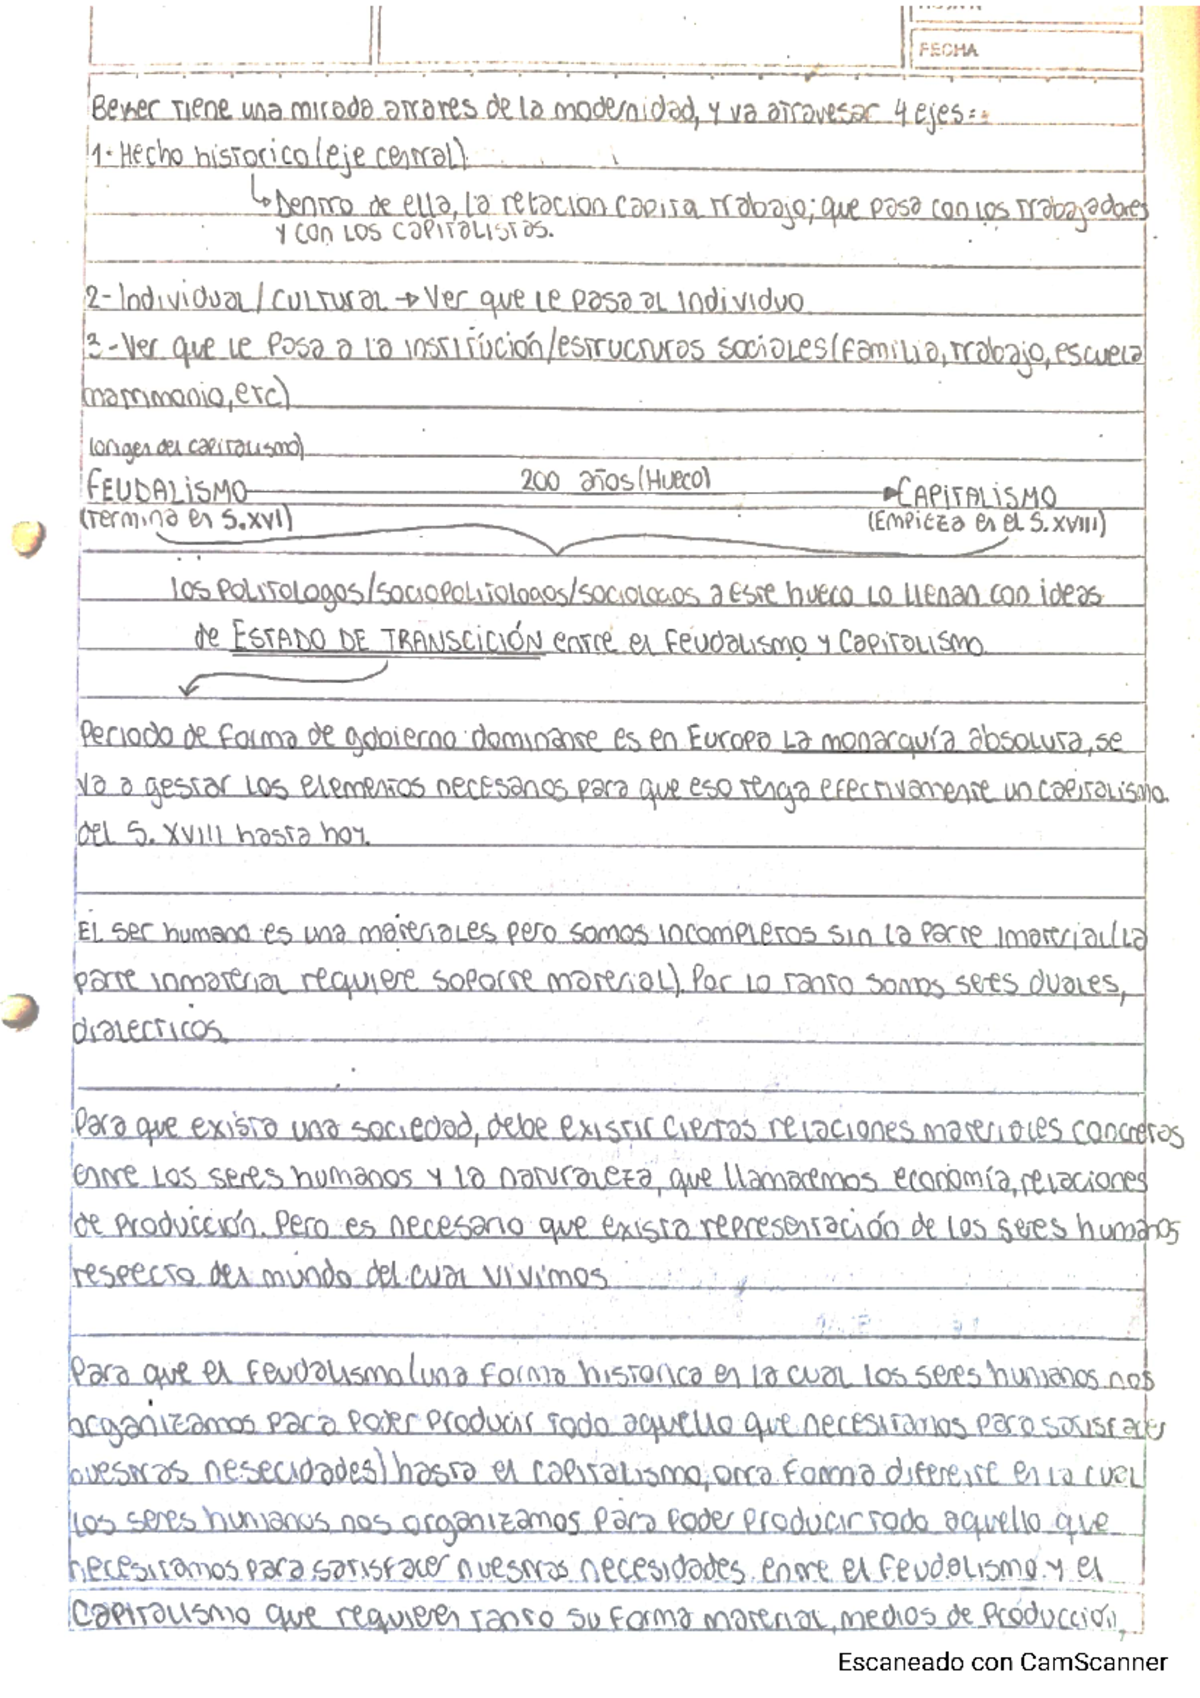 FECHA
Beker tiene una mirada atraves de la modernidad, y va atravesar 4 ejes:
1- Hecho historico (eje central)
↳ Dentro de ella, la relacion capita trabajo; que pasa con los trabajadores
y con los capitalistas.
2- Individual / cultural → Ver que le pasa al individuo
3- Ver que le pasa a la institución/estructuras sociales (familia, trabajo, escuela
matrimonio, etc)
(origen del capitalismo)
FEUDALISMO 200 años (Hueco) CAPITALISMO
(termina en S.XVI) (Empieza en el S.XVIII)
los politologos/sociopolitologos/sociologos a este hueco lo llenan con ideas
de ESTADO DE TRANSCICIÓN entre el feudalismo y capitalismo
Periodo de forma de gobierno dominante es en Europa la monarquía absoluta, se
va a gestar los elementos necesarios para que eso tenga efectivamente un capitalismo.
del S. XVIII hasta hoy.
El ser humano es una materiales pero somos incompletos sin la parte imaterial (la
parte inmaterial requiere soporte material). Por lo tanto somos seres duales,
dialecticos.
Para que exista una sociedad, debe existir ciertas relaciones materiales concretas
entre los seres humanos y la naturaleza, que llamaremos economía, relaciones
de producción. Pero es necesario que exista representación de los seres humanos
respecto del mundo del cual vivimos
Para que el feudalismo (una forma historica en la cual los seres humanos nos
organizamos para poder producir todo aquello que necesitamos para satisfacer
nuestras nesecidades) hasta el capitalismo, otra forma diferente en la cual
los seres humanos nos organizamos para poder producir todo aquello que
necesitamos para satisfacer nuestras necesidades. entre el feudalismo y el
capitalismo que requieren tanto su forma material, medios de producción,
Escaneado con CamScanner